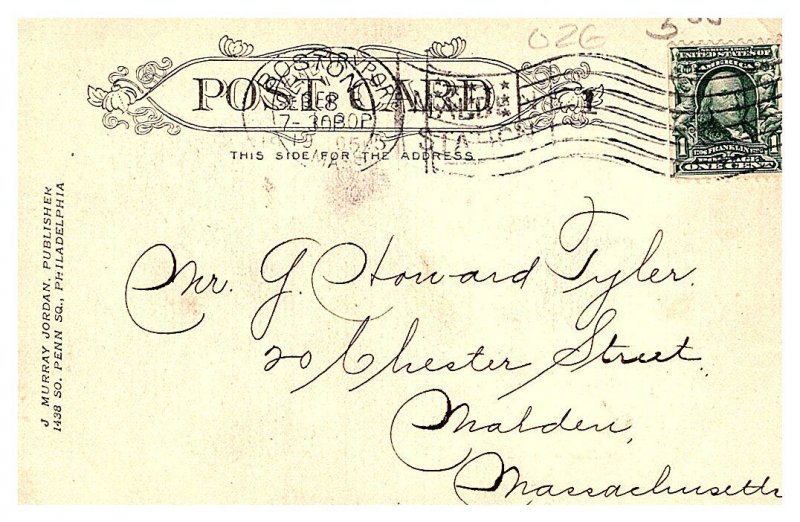 026
POST CARD
THIS SIDE FOR THE ADDRESS
BOSTON
UNITED STATES OF
AMERICA
FRANKLIN
1 POSTAGE 1
ONE CENT
Mr. G. Howard Tyler.
20 Chester Street.
Malden,
Massachusetts
J. MURRAY JORDAN, PUBLISHER
1438 SO. PENN SQ., PHILADELPHIA